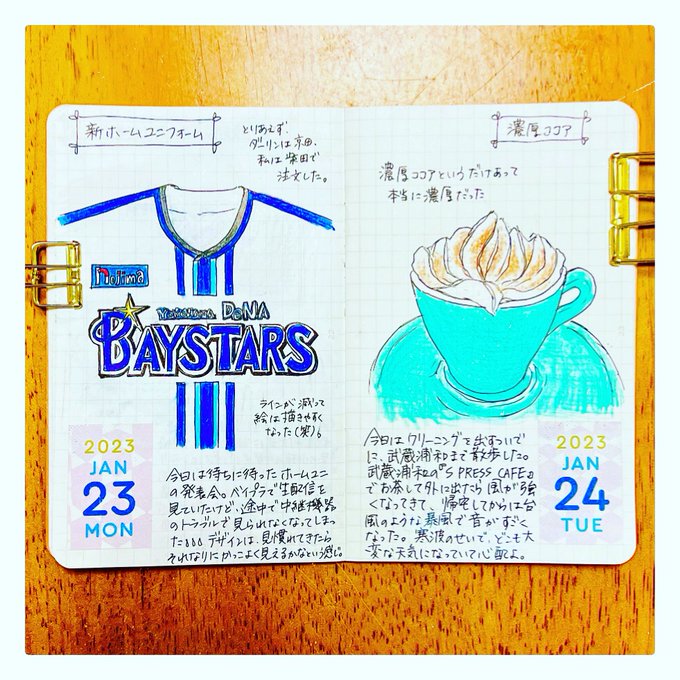 新ホームユニフォーム
とりあえず、
ダーリンは京田、
私は柴田で
注文した。
nojima
YOKOHAMA DeNA
BAYSTARS
ラインが減って
絵は描きやすく
なった(笑)。
2023
JAN
23
MON
今日は待ちに待ったホームユニ
の発表会。ベイプラで生配信を
見ていたけど、途中で中継機器
のトラブルで見られなくなってしまっ
た。。。デザインは、見慣れてきたら
それなりにかっこよく見えるかなという感じ。
濃厚ココア
濃厚ココアというだけあって
本当に濃厚だった
今日はクリーニングを出すついで
に、武蔵浦和まで散歩した。
武蔵浦和の『S PRESS CAFE』
でお茶して外に出たら風が強
くなってきて、帰宅してからは台
風のような暴風で音がすごく
なった。寒波のせいで、どこも大
変な天気になっていて心配よ。
2023
JAN
24
TUE